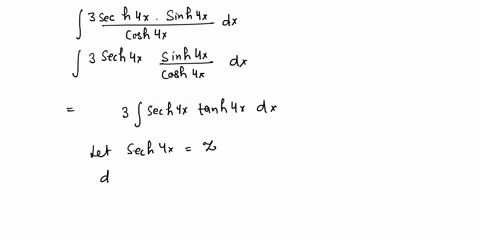 ∫ 3 Sech 4x . Sinh 4x / Cosh 4x dx
∫ 3 Sech 4x Sinh 4x / Cosh 4x dx
= 3 ∫ Sech 4x tanh 4x dx
Let Sech 4x = z
d